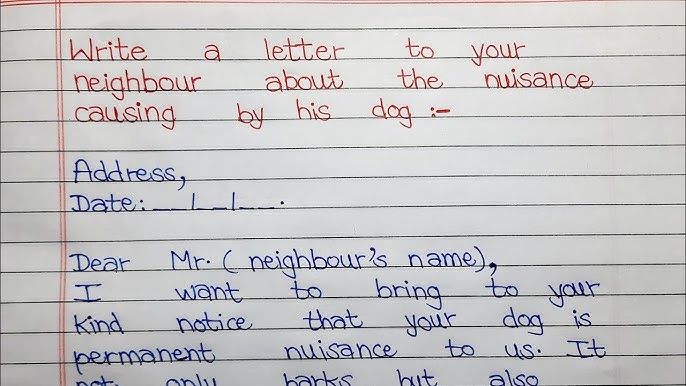 Write a letter to your
neighbour about the nuisance
causing by his dog :-
Address,
Date:__/__/__.
Dear Mr. ( neighbour's name),
I want to bring to your
kind notice that your dog is
permanent nuisance to us. It
not only barks but also